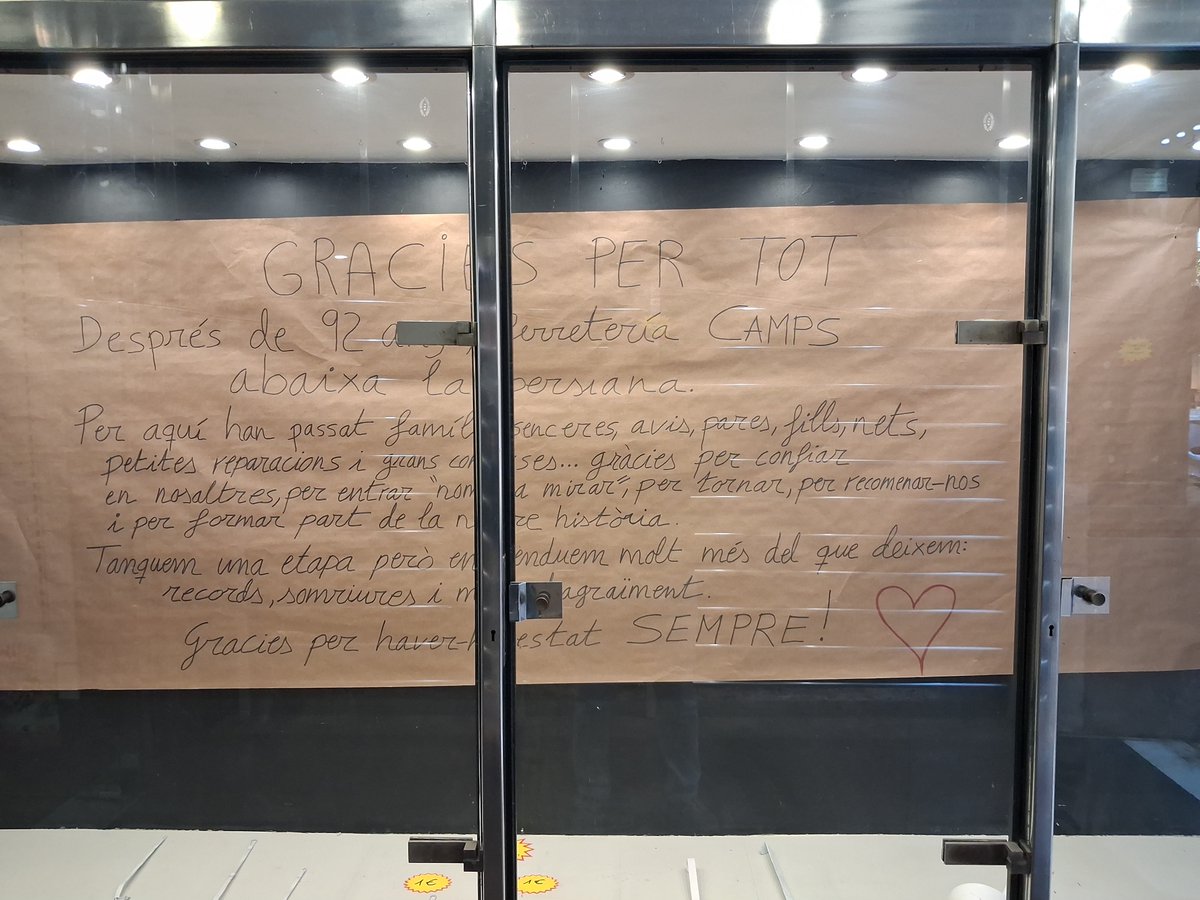 GRACIES PER TOT
Després de 92 anys, Ferretería CAMPS
abaixa la persiana.
Per aquí han passat famílies senceres, avis, pares, fills, nets,
petites reparacions i grans ... gràcies per confiar
en nosaltres, per entrar "només a mirar", per tornar, per recomenar-nos
i per formar part de la nostre història.
Tanquem una etapa però ens enduem molt més del que deixem:
records, somriures i molt d'agraïment.
Gracies per haver-hi estat SEMPRE!
1€
1€